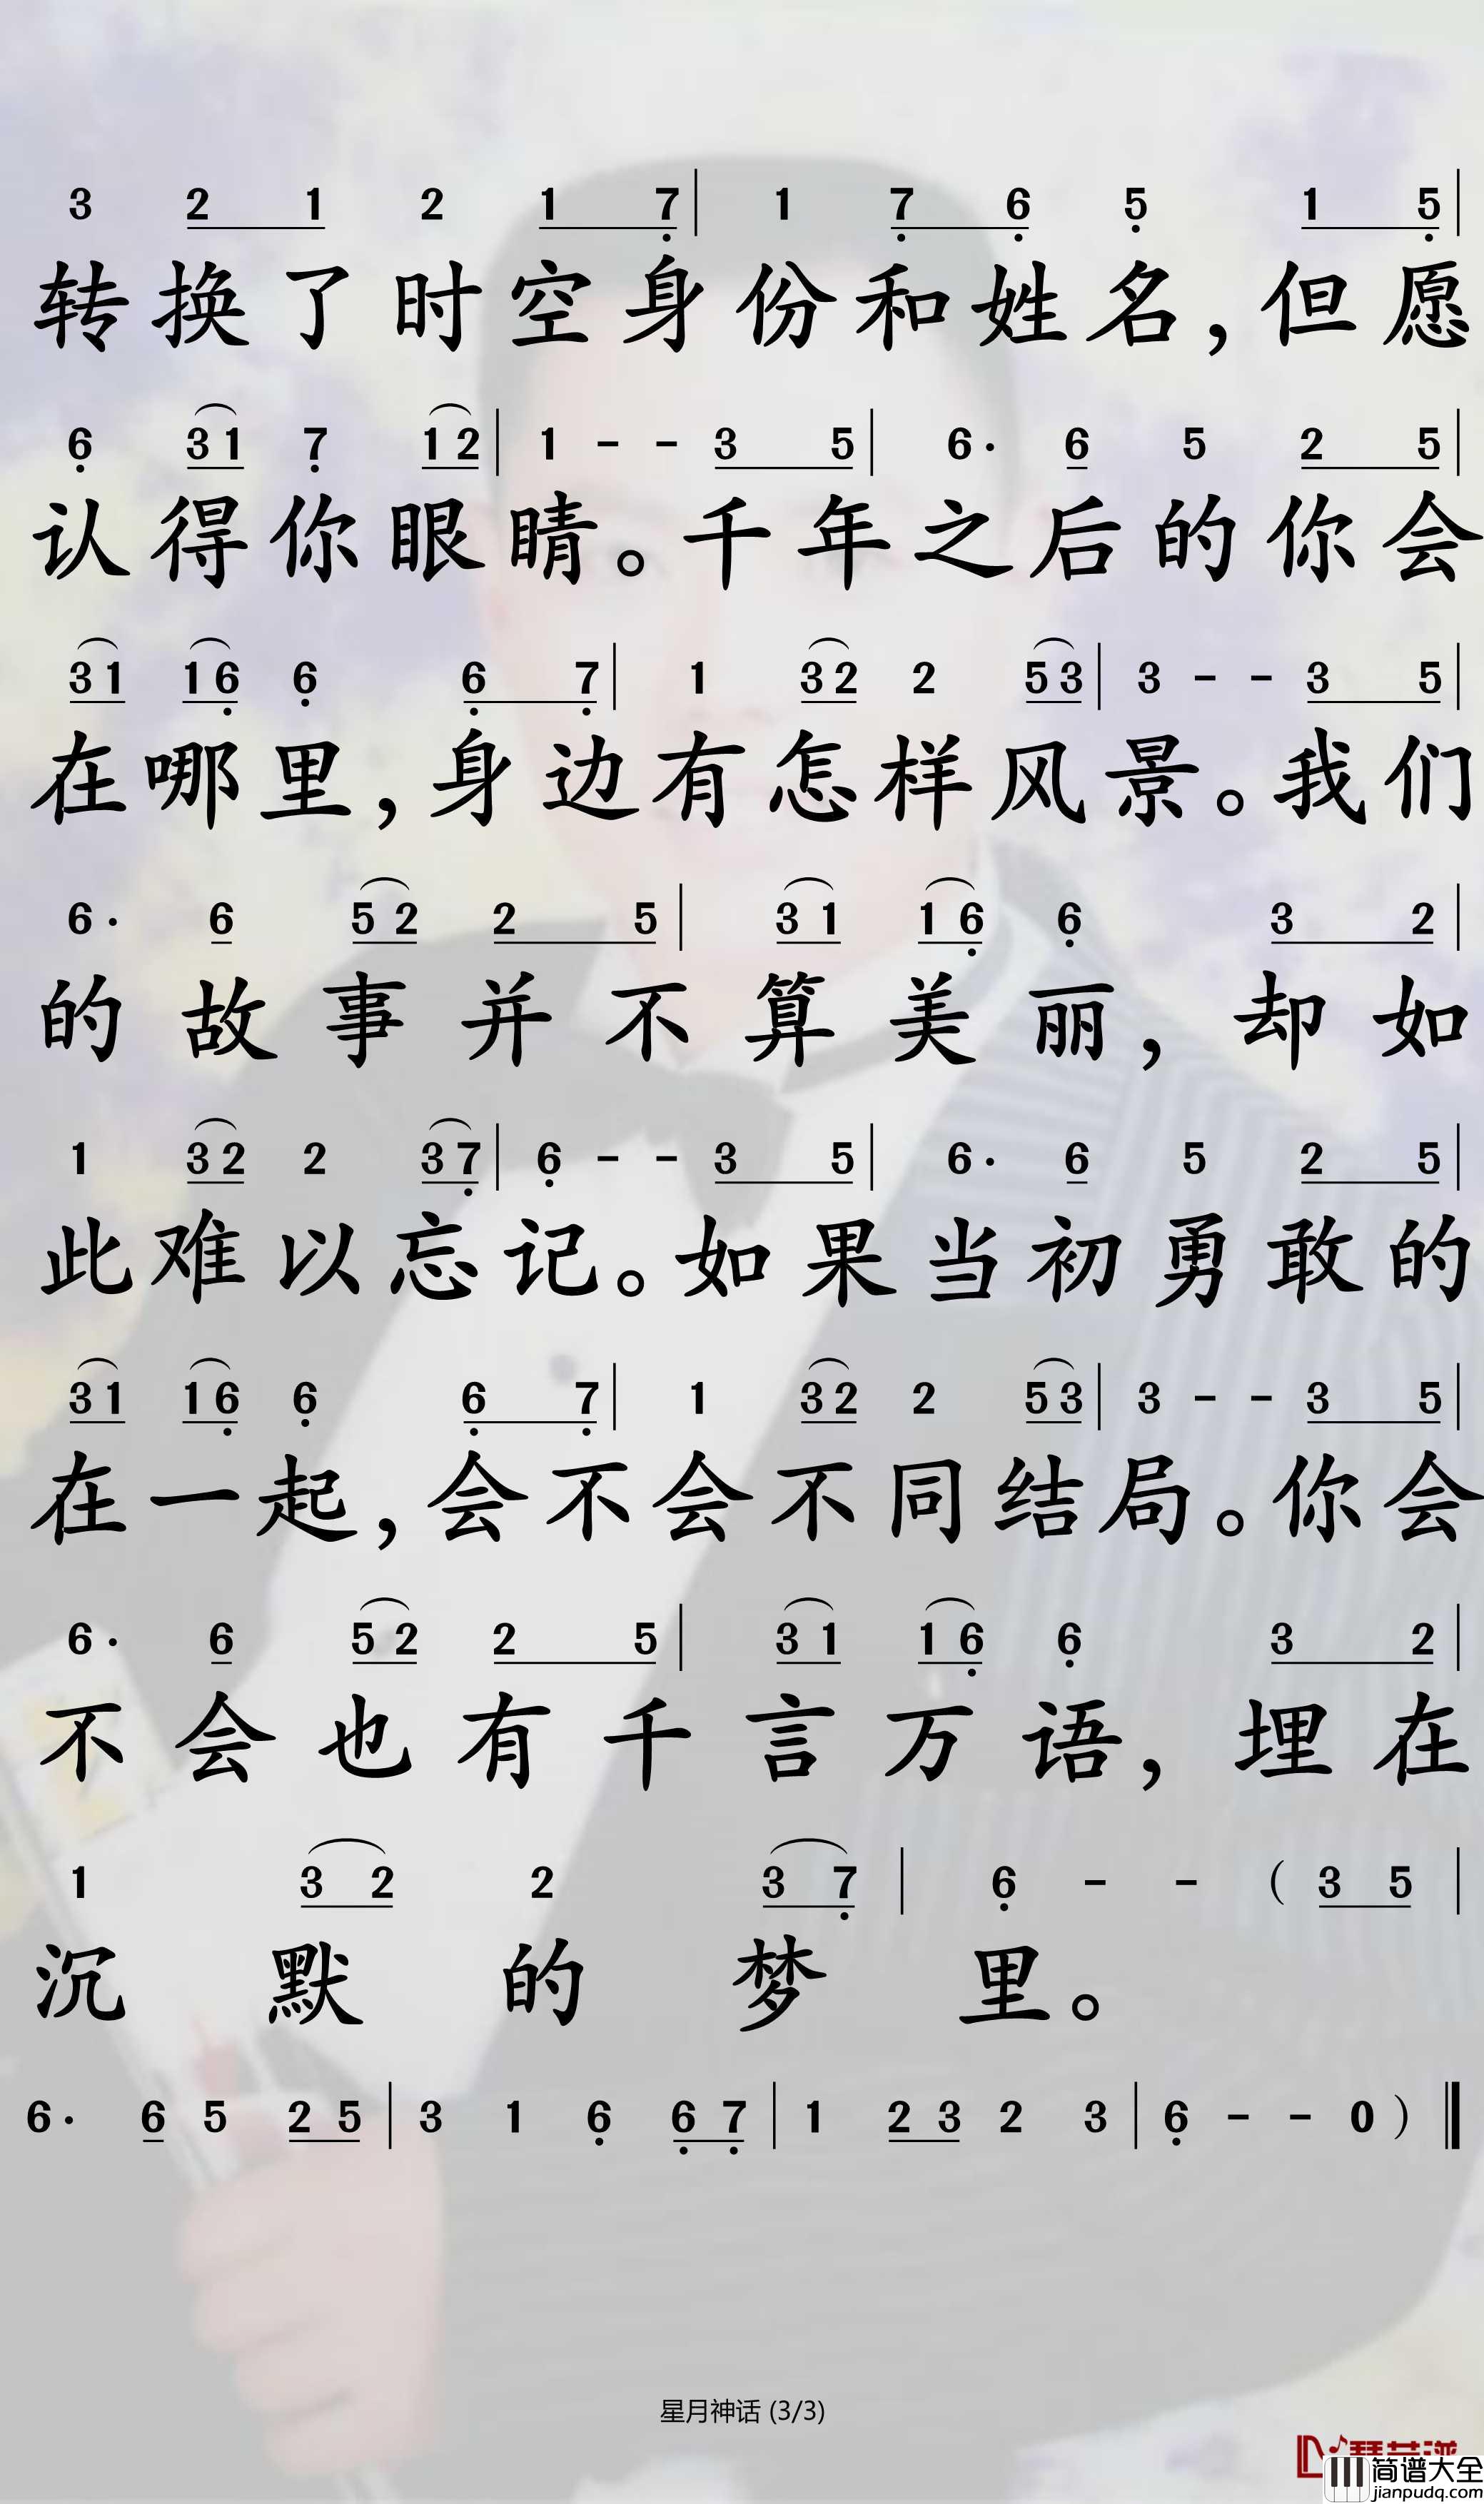 3 2 1 2 1 7 | 1 7 6 5 1 5 |
转换了时空身份和姓名,但愿
6 3 1 7 1 2 | 1 - - 3 5 | 6· 6 5 2 5 |
认得你眼睛。千年之后的你会
3 1 1 6 6 6 7 | 1 3 2 2 5 3 | 3 - - 3 5 |
在哪里,身边有怎样风景。我们
6· 6 5 2 2 5 | 3 1 1 6 6 3 2 |
的故事并不算美丽,却如
1 3 2 2 3 7 | 6 - - 3 5 | 6· 6 5 2 5 |
此难以忘记。如果当初勇敢的
3 1 1 6 6 6 7 | 1 3 2 2 5 3 | 3 - - 3 5 |
在一起,会不会不同结局。你会
6· 6 5 2 2 5 | 3 1 1 6 6 3 2 |
不会也有千言万语,埋在
1 3 2 2 3 7 | 6 - - ( 3 5 |
沉默的梦里。
6· 6 5 2 5 | 3 1 6 6 7 | 1 2 3 2 3 | 6 - - 0 )
星月神话 (3/3)
简谱大全
jianpudq.com